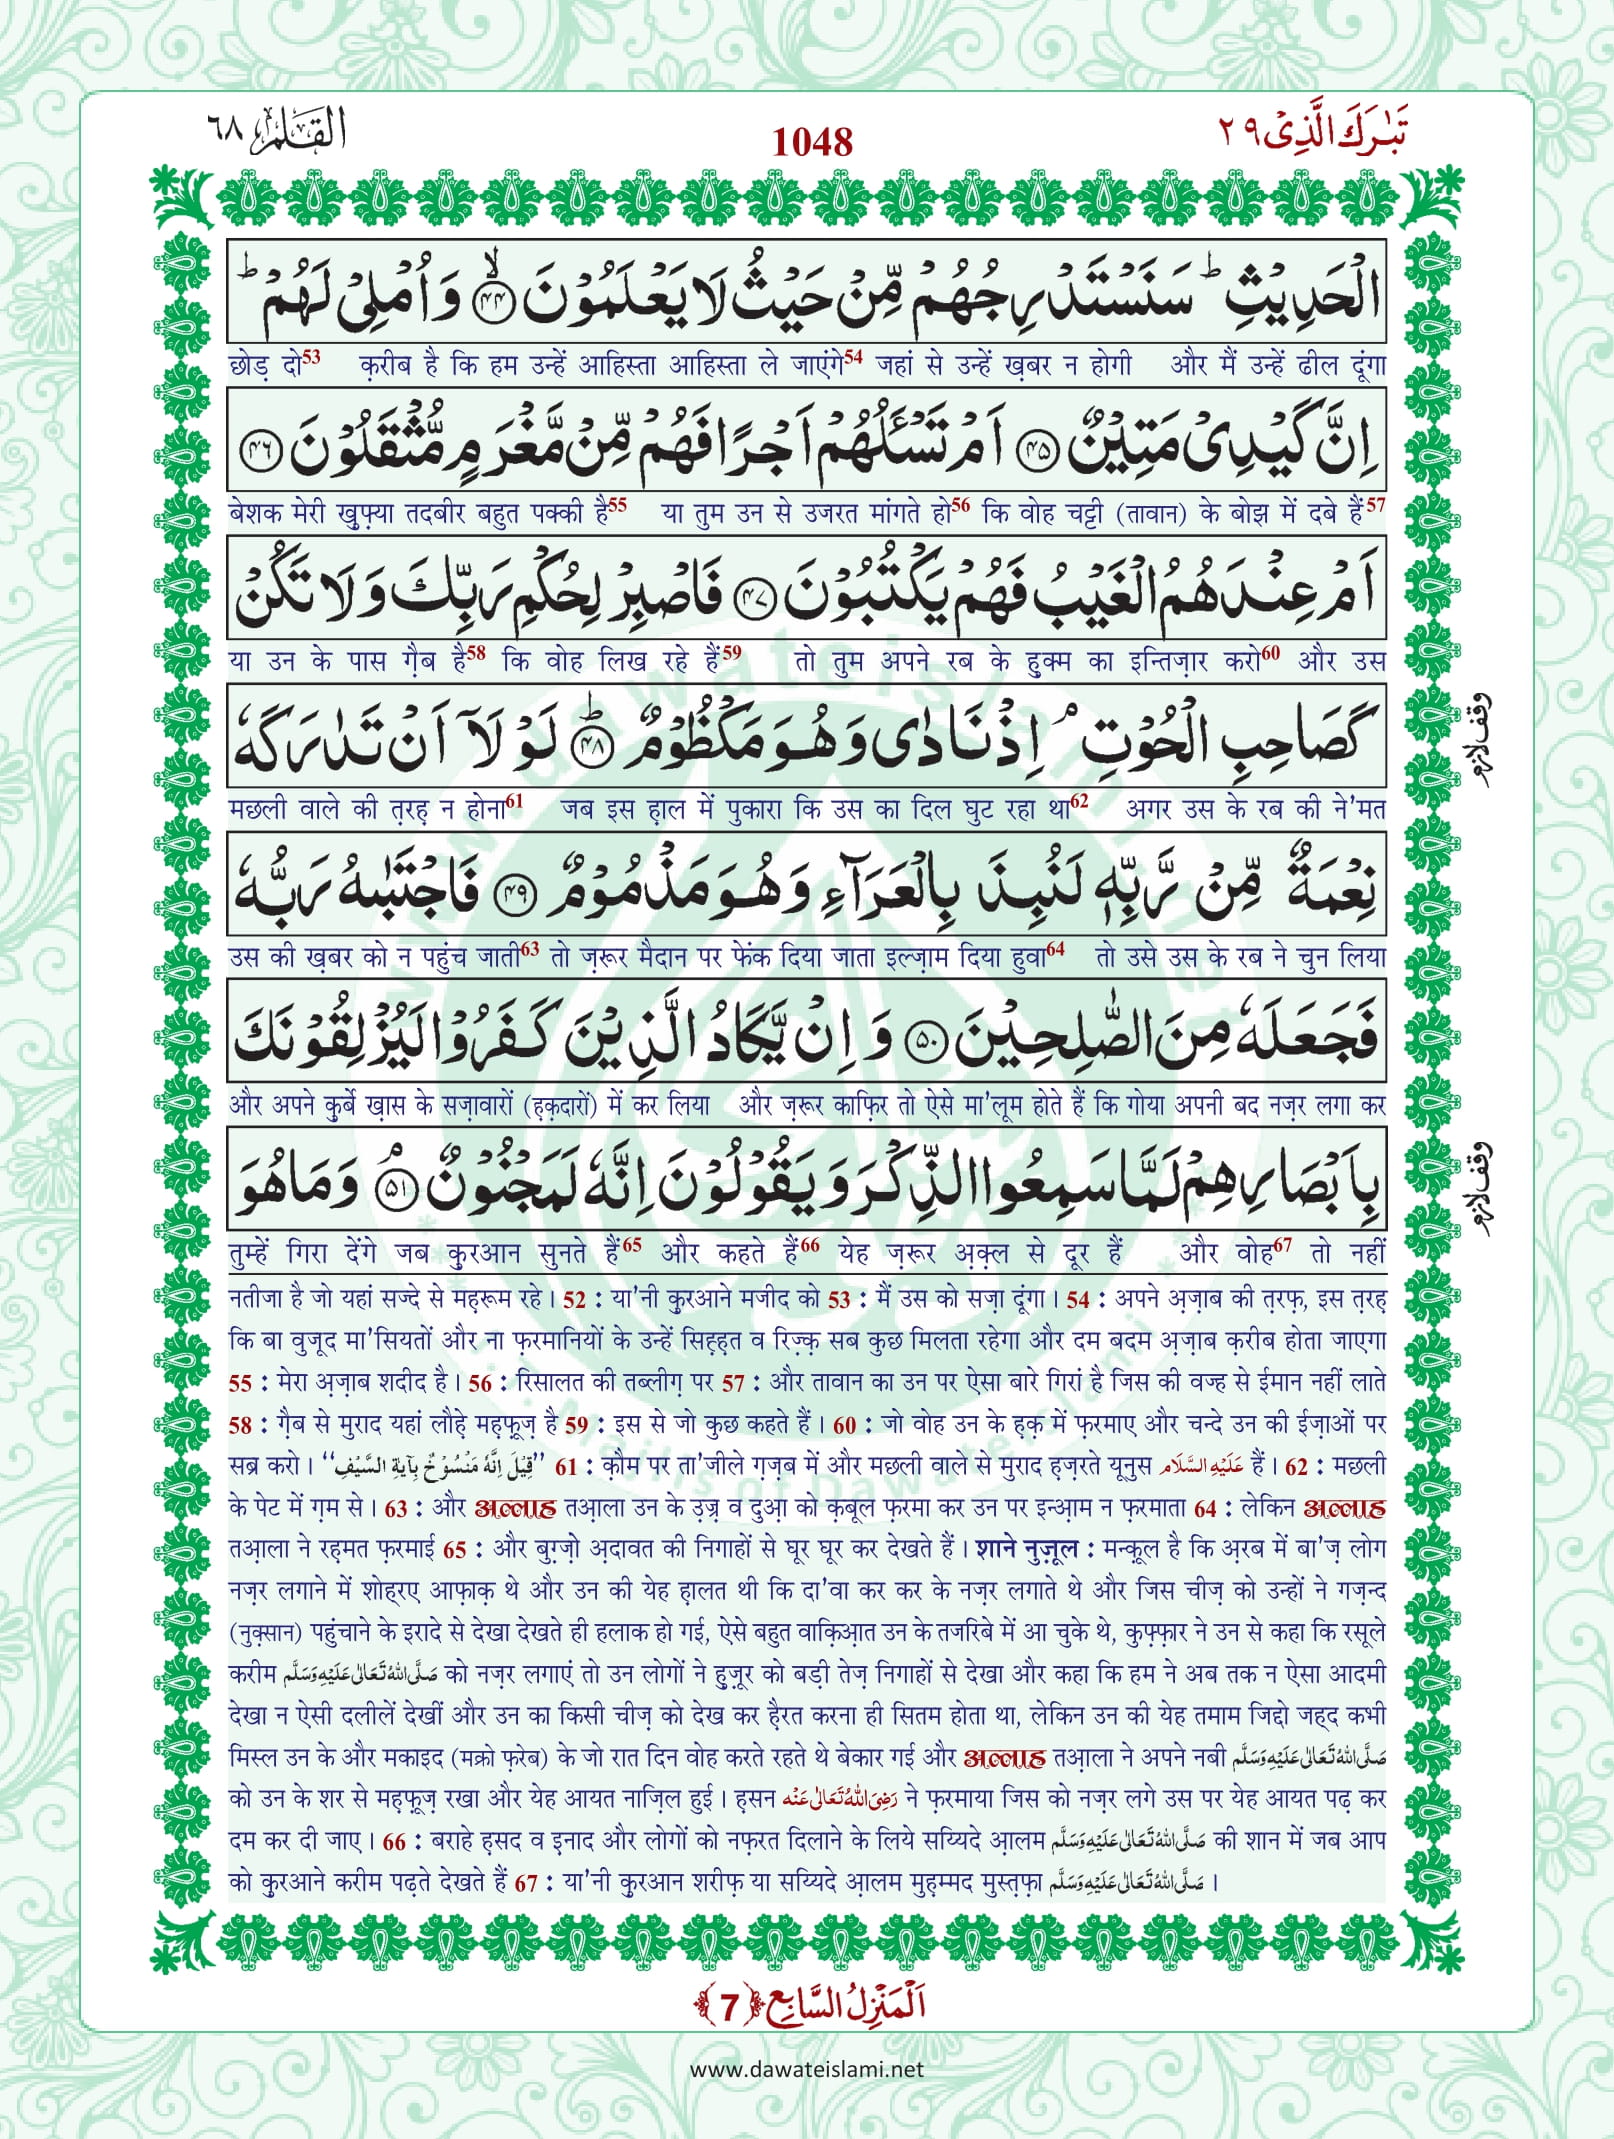 اَلْقَلَم ٦٨
1048
تَبٰرَكَ الَّذِیْ ٢٩
الْحَدِیْثِ ؕ سَنَسْتَدْرِجُهُمْ مِّنْ حَیْثُ لَا یَعْلَمُوْنَ ۙ﴿۴۴﴾ وَ اُمْلِیْ لَهُمْ ؕ
छोड़ दो53 क़रीब है कि हम उन्हें आहिस्ता आहिस्ता ले जाएंगे54 जहां से उन्हें ख़बर न होगी और मैं उन्हें ढील दूंगा
اِنَّ كَیْدِیْ مَتِیْنٌ ﴿۴۵﴾ اَمْ تَسْـَٔلُهُمْ اَجْرًا فَهُمْ مِّنْ مَّغْرَمٍ مُّثْقَلُوْنَ ﴿۴۶﴾
बेशक मेरी ख़ुफ़्या तदबीर बहुत पक्की है55 या तुम उन से उजरत मांगते हो56 कि वोह चट्टी (तावान) के बोझ में दबे हैं57
اَمْ عِنْدَهُمُ الْغَیْبُ فَهُمْ یَكْتُبُوْنَ ﴿۴۷﴾ فَاصْبِرْ لِحُكْمِ رَبِّكَ وَ لَا تَكُنْ
या उन के पास ग़ैब है58 कि वोह लिख रहे हैं59 तो तुम अपने रब के हुक्म का इन्तिज़ार करो60 और उस
كَصَاحِبِ الْحُوْتِ ۘ اِذْ نَادٰى وَ هُوَ مَكْظُوْمٌ ؕ﴿۴۸﴾ لَوْ لَاۤ اَنْ تَدٰرَكَهٗ
وقف لازم
मछली वाले की त़रह़ न होना61 जब इस ह़ाल में पुकारा कि उस का दिल घुट रहा था62 अगर उस के रब की ने'मत
نِعْمَةٌ مِّنْ رَّبِّهٖ لَنُبِذَ بِالْعَرَآءِ وَ هُوَ مَذْمُوْمٌ ﴿۴۹﴾ فَاجْتَبٰىهُ رَبُّهٗ
उस की ख़बर को न पहुंच जाती63 तो ज़रूर मैदान पर फेंक दिया जाता इल्ज़ाम दिया हुवा64 तो उसे उस के रब ने चुन लिया
فَجَعَلَهٗ مِنَ الصّٰلِحِیْنَ ﴿۵۰﴾ وَ اِنْ یَّكَادُ الَّذِیْنَ كَفَرُوْا لَیُزْلِقُوْنَكَ
और अपने क़ुर्बे ख़ास के सज़ावारों (ह़क़दारों) में कर लिया और ज़रूर काफ़िर तो ऐसे मा'लूम होते हैं कि गोया अपनी बद नज़र लगा कर
بِاَبْصَارِهِمْ لَمَّا سَمِعُوا الذِّكْرَ وَ یَقُوْلُوْنَ اِنَّهٗ لَمَجْنُوْنٌ ۘ﴿۵۱﴾ وَ مَا هُوَ
وقف لازم
तुम्हें गिरा देंगे जब क़ुरआन सुनते हैं65 और कहते हैं66 येह ज़रूर अ़क़्ल से दूर हैं और वोह67 तो नहीं
नतीजा है जो यहां सज्दे से मह़रूम रहे। 52 : या'नी क़ुरआने मजीद को 53 : मैं उस को सज़ा दूंगा। 54 : अपने अ़ज़ाब की त़रफ़, इस त़रह़
कि बा वुजूद मा'सियतों और ना फ़रमानियों के उन्हें सिह़्ह़त व रिज़्क़ सब कुछ मिलता रहेगा और दम बदम अ़ज़ाब क़रीब होता जाएगा
55 : मेरा अ़ज़ाब शदीद है। 56 : रिसालत की तब्लीग़ पर 57 : और तावान का उन पर ऐसा बारे गिरां है जिस की वज्ह से ईमान नहीं लाते
58 : ग़ैब से मुराद यहां लौह़े मह़फ़ूज़ है 59 : इस से जो कुछ कहते हैं। 60 : जो वोह उन के ह़क़ में फ़रमाए और चन्दे उन की ईज़ाओं पर
सब्र करो। ''قِیْلَ اِنَّهٗ مَنْسُوْخٌ بِآیَةِ السَّیْفِ'' 61 : क़ौम पर ता'जीले ग़ज़ब में और मछली वाले से मुराद ह़ज़रते यूनुस عَلَیْهِ السَّلَام हैं। 62 : मछली
के पेट में ग़म से। 63 : और अल्लाह तआ़ला उन के उ़ज़्र व दुआ़ को क़बूल फ़रमा कर उन पर इन्आ़म न फ़रमाता 64 : लेकिन अल्लाह
तआ़ला ने रह़मत फ़रमाई 65 : और बुग़्ज़ो अ़दावत की निगाहों से घूर घूर कर देखते हैं। शाने नुज़ूल : मन्क़ूल है कि अ़रब में बा'ज़ लोग
नज़र लगाने में शोह्रए आफ़ाक़ थे और उन की येह ह़ालत थी कि दा'वा कर कर के नज़र लगाते थे और जिस चीज़ को उन्हों ने गज़न्द
(नुक़्सान) पहुंचाने के इरादे से देखा देखते ही हलाक हो गई, ऐसे बहुत वाक़िआ़त उन के तजरिबे में आ चुके थे, कुफ़्फ़ार ने उन से कहा कि रसूले
करीम صَلَّی اللهُ تَعَالٰی عَلَیْهِ وَسَلَّم को नज़र लगाएं तो उन लोगों ने हुज़ूर को बड़ी तेज़ निगाहों से देखा और कहा कि हम ने अब तक न ऐसा आदमी
देखा न ऐसी दलीलें देखीं और उन का किसी चीज़ को देख कर ह़ैरत करना ही सितम होता था, लेकिन उन की येह तमाम जिद्दो जह्द कभी
मिस्ल उन के और मकाइद (मक्रो फ़रेब) के जो रात दिन वोह करते रहते थे बेकार गई और अल्लाह तआ़ला ने अपने नबी صَلَّی اللهُ تَعَالٰی عَلَیْهِ وَسَلَّم
को उन के शर से मह़फ़ूज़ रखा और येह आयत नाज़िल हुई। ह़सन رَضِیَ اللهُ تَعَالٰی عَنْه ने फ़रमाया जिस को नज़र लगे उस पर येह आयत पढ़ कर
दम कर दी जाए। 66 : बराहे ह़सद व इनाद और लोगों को नफ़रत दिलाने के लिये सय्यिदे आ़लम صَلَّی اللهُ تَعَالٰی عَلَیْهِ وَسَلَّم की शान में जब आप
को क़ुरआने करीम पढ़ते देखते हैं 67 : या'नी क़ुरआन शरीफ़ या सय्यिदे आ़लम मुह़म्मद मुस्त़फ़ा صَلَّی اللهُ تَعَالٰی عَلَیْهِ وَسَلَّم ।
اَلْمَنْزِلُ السَّابِع ﴿7﴾
www.dawateislami.net